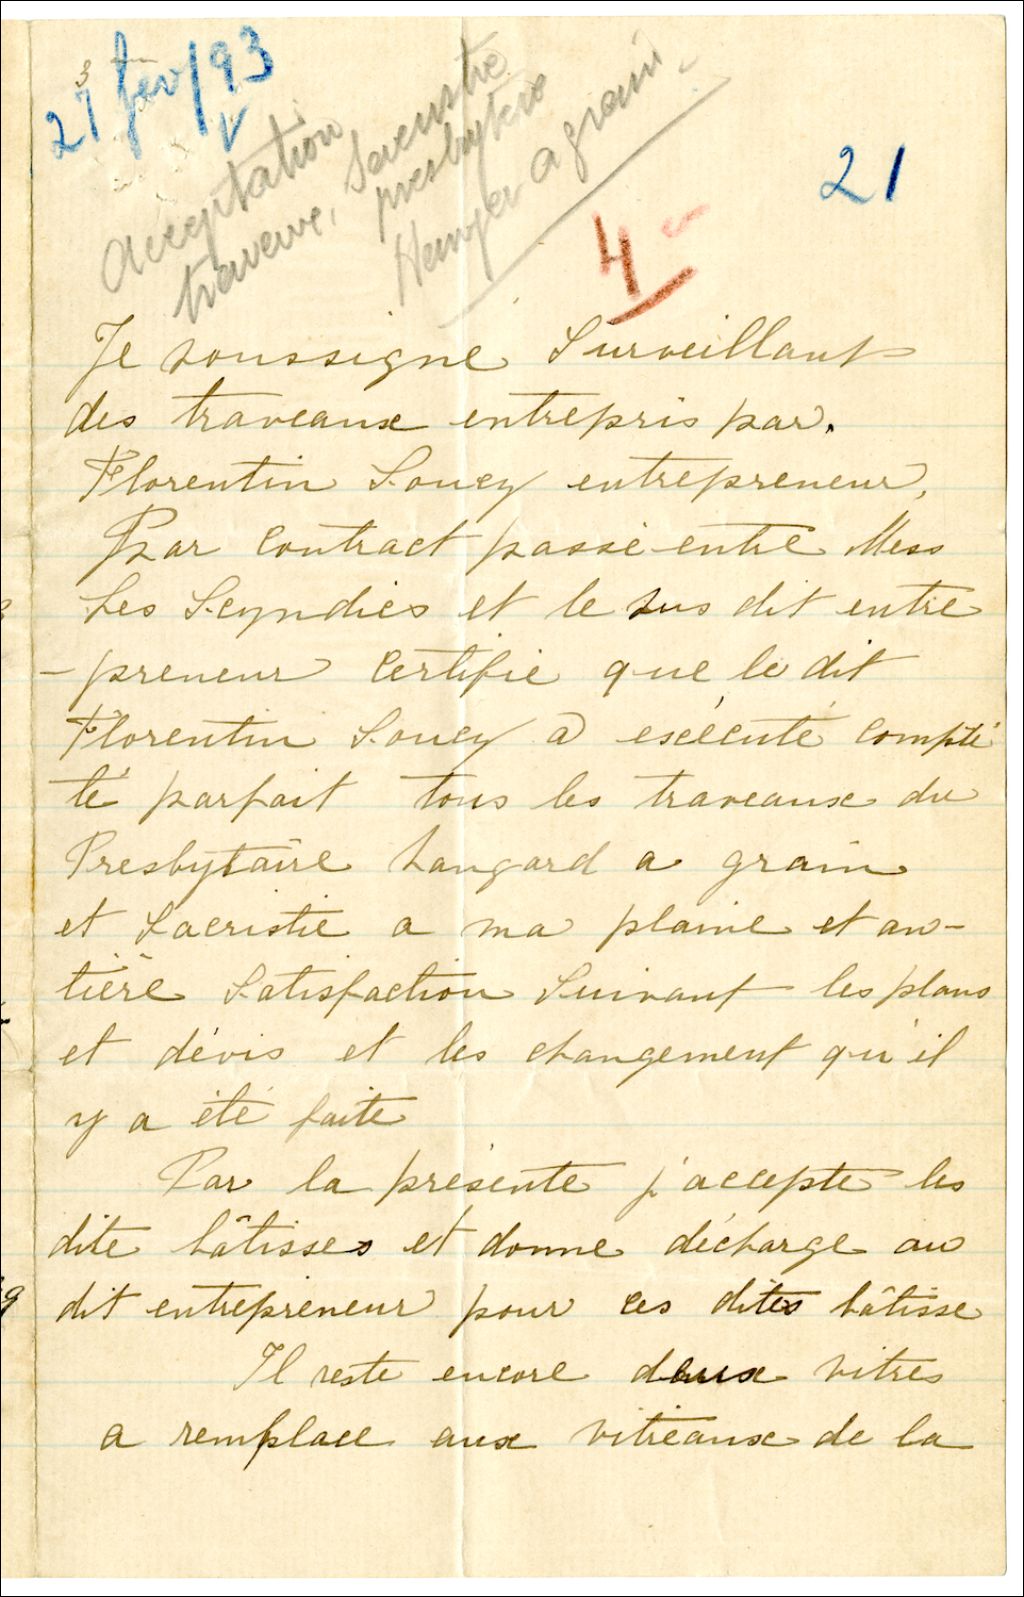 27 fev/93
3
Acceptation
traveux, Sacristie
presbytere
Hangar a grain
21
4
Je soussigné Surveillant
des traveaux entrepris par.
Florentin Soucy entrepreneur,
Par contract passé entre Mess
Les Scyndics et le sus dit entre
-preneur certifie que le dit
Florentin Soucy a exécuté compté
té parfait tous les traveaux du
Presbytaire hangard a grain
et Sacristie a ma plaine et an-
tière Satisfaction Suivant les plans
et dévis et les changement qu'il
y a été faite
Par la présente j'accepte les
dite bâtisses et donne décharge au
dit entrepreneur pour ces dites bâtisse
Il reste encore deux vitres
a remplace aux vitreaux de la